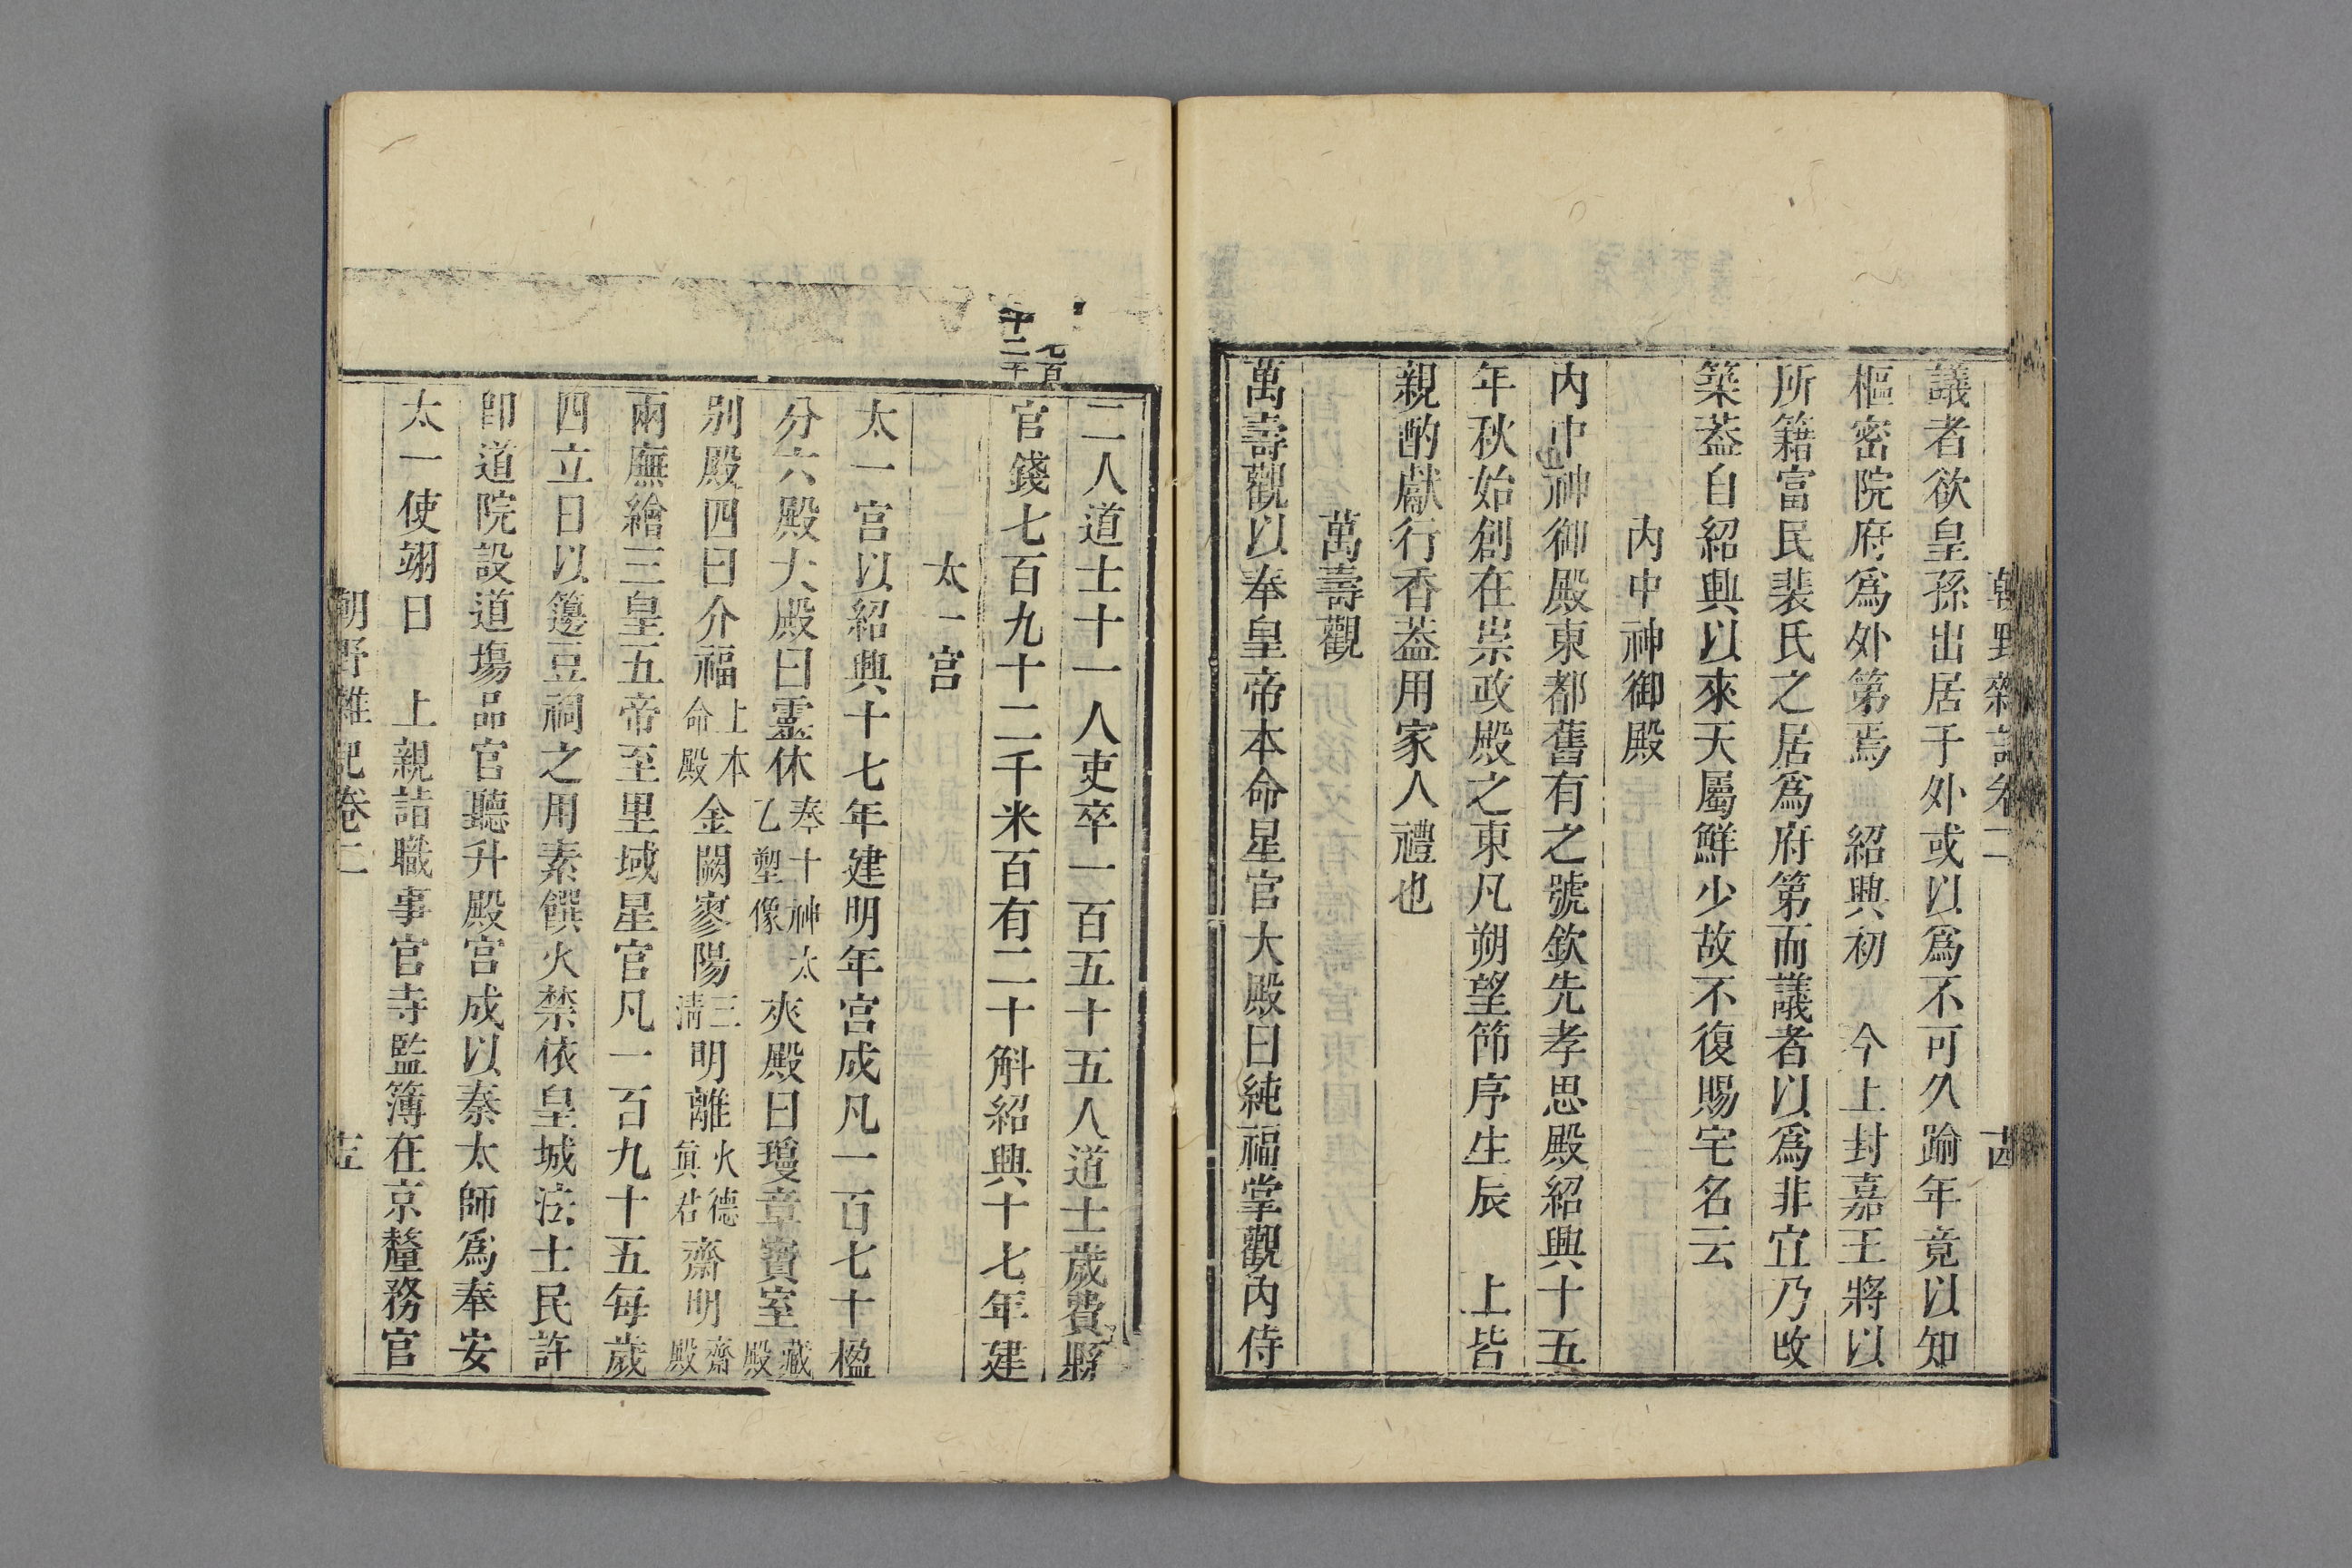 朝野雜記卷二 十四
議者欲皇孫出居于外或以爲不可久踰年竟以知
樞密院府爲外第焉 紹興初 今上封嘉王將以
所籍富民裴氏之居爲府第而議者以爲非宜乃改
築葢自紹興以來天屬鮮少故不復賜宅名云
內中神御殿
內中神御殿東都舊有之號欽先孝思殿紹興十五
年秋始創在崇政殿之東凡朔望節序生辰 上皆
親酌獻行香葢用家人禮也
萬壽觀
萬壽觀以奉皇帝本命星官大殿曰純福掌觀內侍
七百
十二千
二人道士十一人吏卒一百五十五人道士歲費縣
官錢七百九十二千米百有二十斛紹興十七年建
太一宮
太一宮以紹興十七年建明年宮成凡一百七十楹
分六殿大殿曰靈休奉十神太乙塑像夾殿曰瓊章寶室藏殿
別殿四曰介福上本命殿金闕寥陽三淸明離火德眞君齋明齋殿
兩廡繪三皇五帝至里域星官凡一百九十五每歲
四立日以籩豆祠之用素饌火禁依皇城法士民許
卽道院設道塲品官聽升殿宮成以秦太師爲奉安
太一使翊日 上親詣職事官寺監簿在京釐務官
朝野雜記卷二 十五